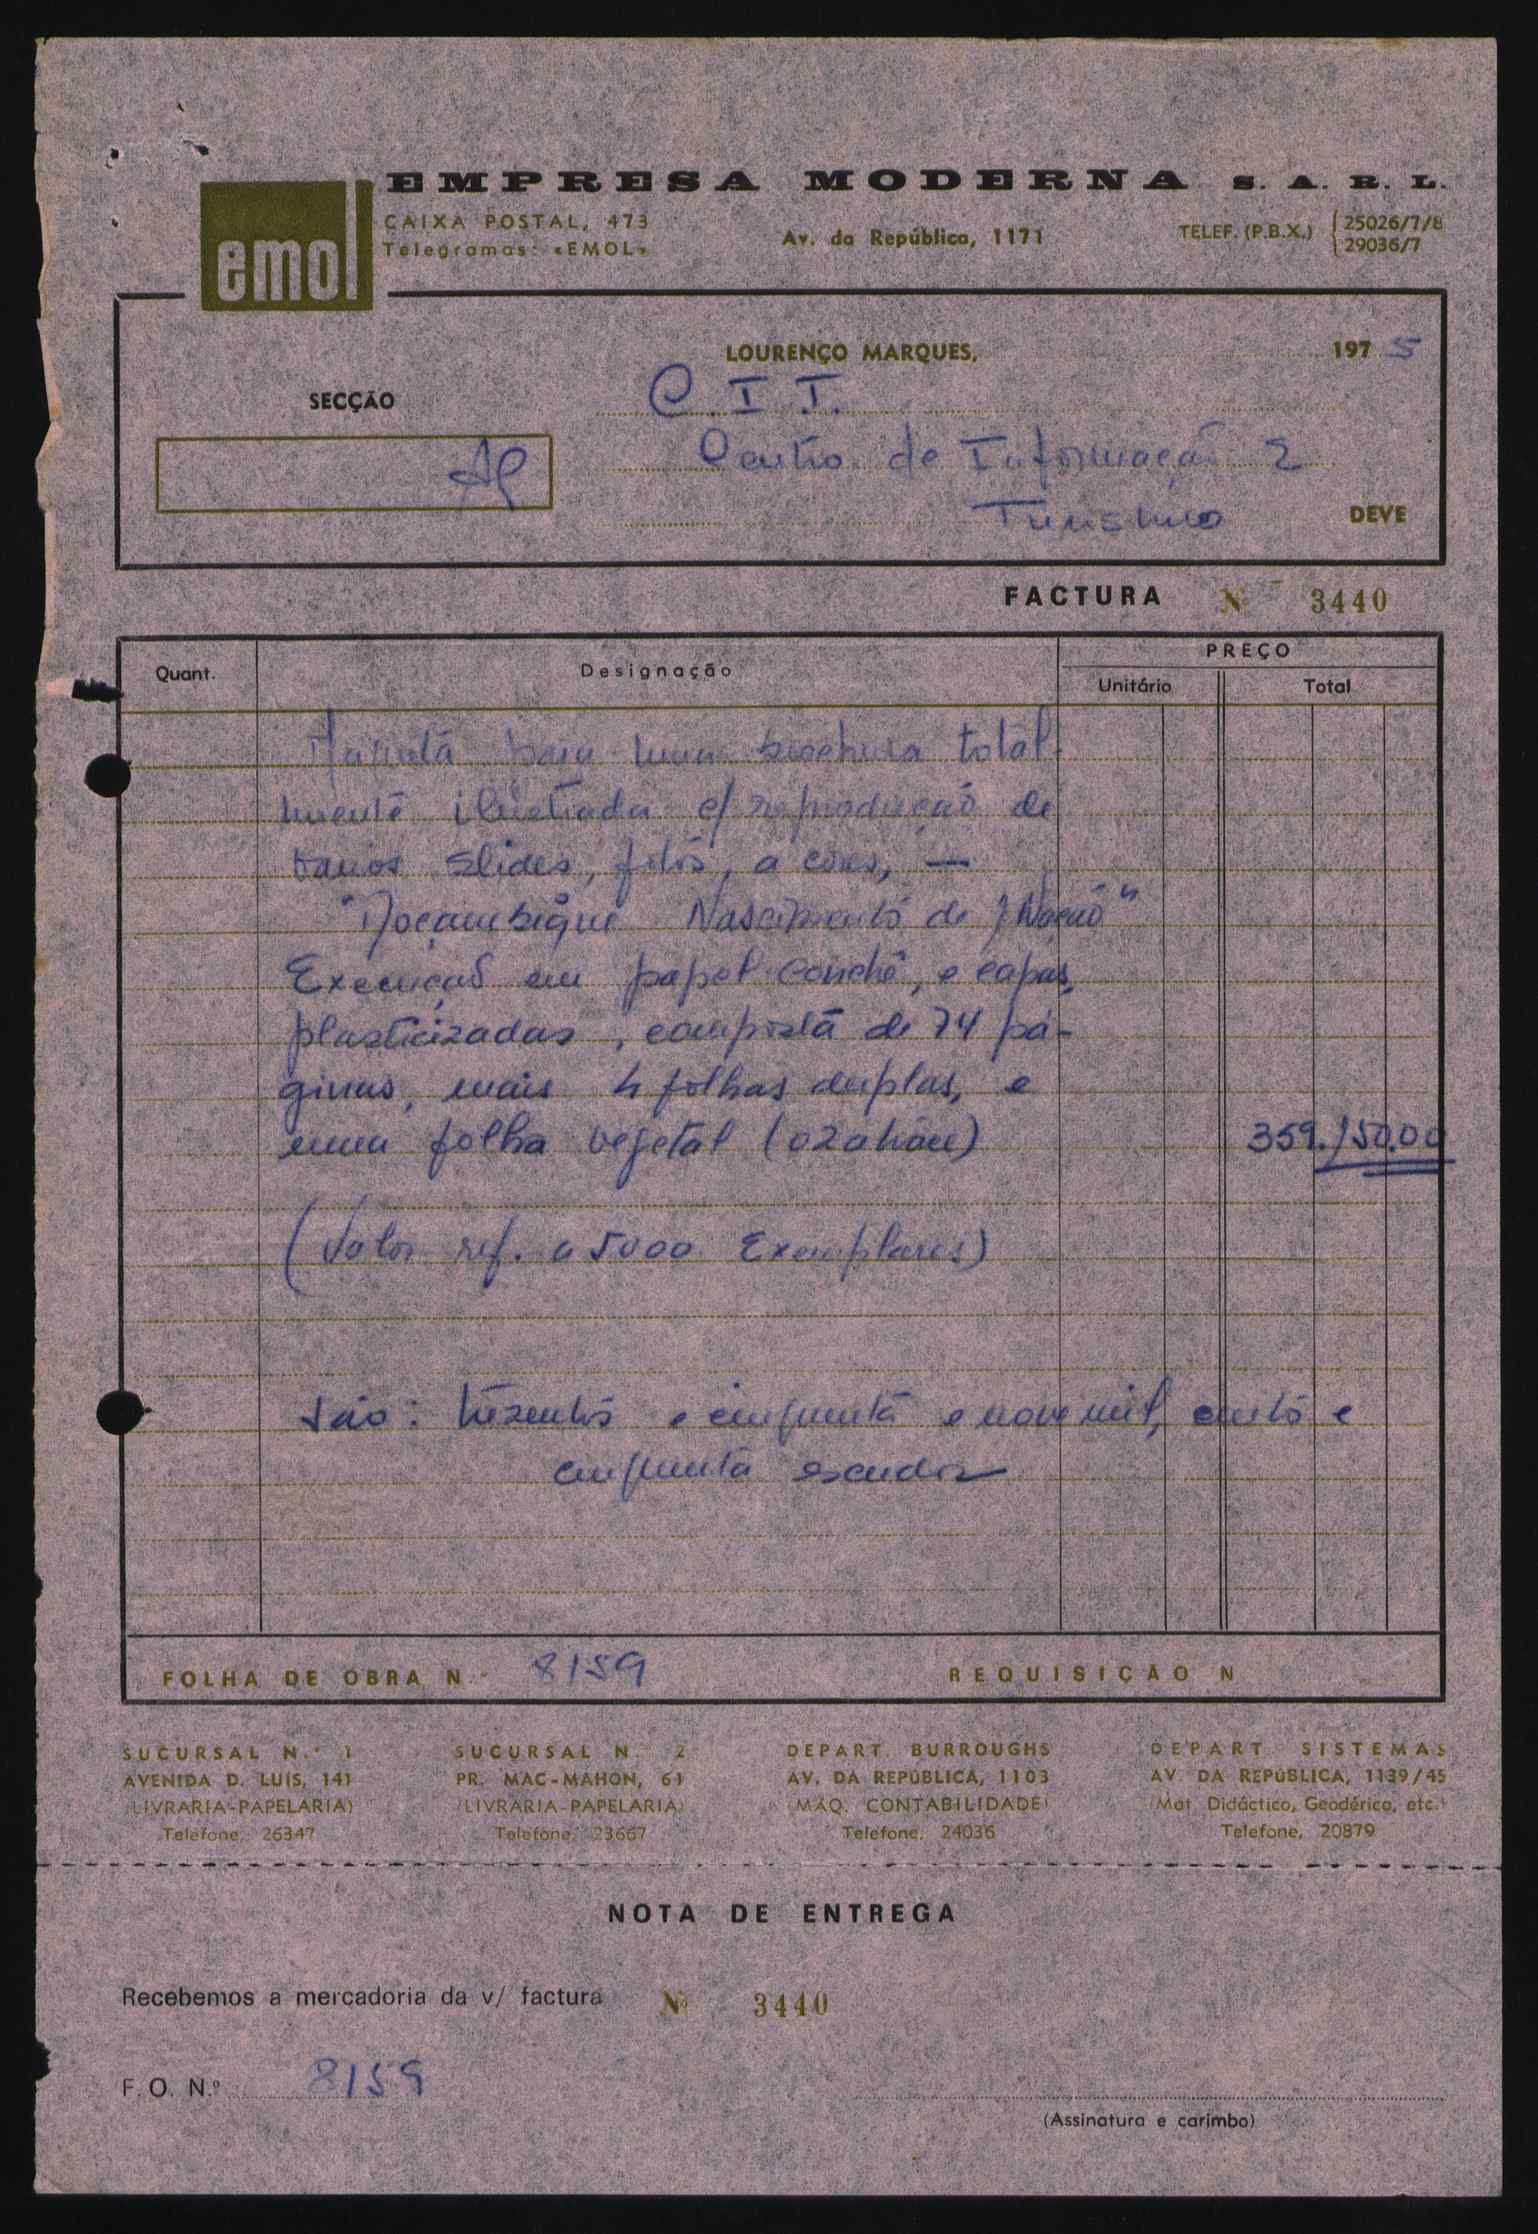 EMPRESA MODERNA S. A. R. L.
emol
CAIXA POSTAL, 473
Telegramas: «EMOL»
Av. da República, 1171
TELEF. (P.B.X.) 25026/7/8
29036/7
LOURENÇO MARQUES, 197 5
SECÇÃO
C. I. T.
Centro de Informação e
Turismo
DEVE
FACTURA Nº 3440
Quant. Designação PREÇO
Unitário Total
Maqueta para uma brochura total-
mente ilustrada c/ reprodução de
varios slides, fotos, a cores, —
"Moçambique Nascimento de Nação"
Execução em papel couché, e capas
plasticizadas, composta de 74 pá-
ginas, mais 4 folhas duplas, e
uma folha vegetal (ozahaue) 359.150.00
(Valor ref. a 5000 Exemplares)
São: trezentos e cinquenta e nove mil, cento e
cinquenta escudos
FOLHA DE OBRA N.º 8159 REQUISIÇÃO N
SUCURSAL N.º 1
AVENIDA D. LUÍS, 141
(LIVRARIA-PAPELARIA)
Telefone, 26347
SUCURSAL N. 2
PR. MAC-MAHON, 61
(LIVRARIA-PAPELARIA)
Telefone, 23667
DEPART. BURROUGHS
AV. DA REPÚBLICA, 1103
(MÁQ. CONTABILIDADE)
Telefone, 24036
DEPART SISTEMAS
AV. DA REPÚBLICA, 1139/45
(Mat Didáctico, Geodérico, etc.)
Telefone, 20879
NOTA DE ENTREGA
Recebemos a mercadoria da v/ factura Nº 3440
F. O. N.º 8159
(Assinatura e carimbo)